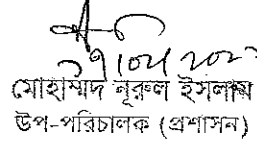 মোহাম্মদ নূরুল ইসলাম
উপ-পরিচালক (প্রশাসন)